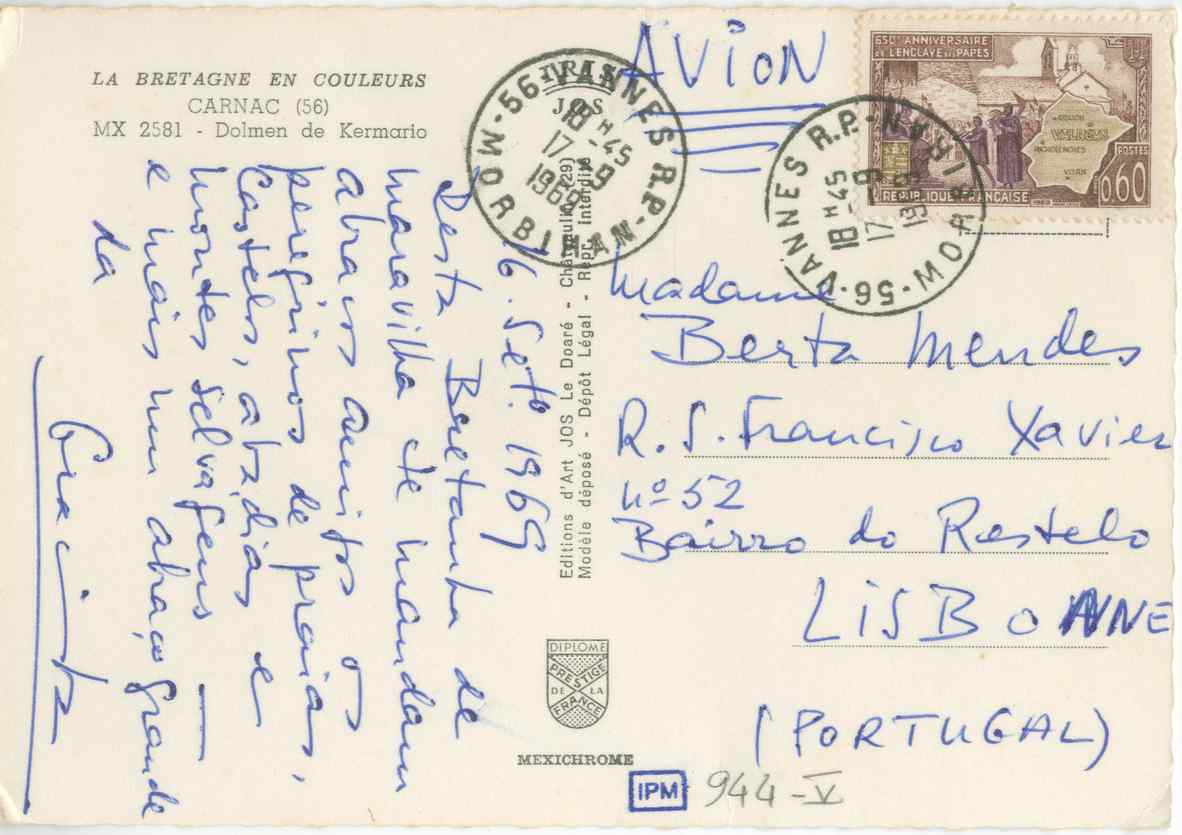 LA BRETAGNE EN COULEURS
CARNAC (56)
MX 2581 - Dolmen de Kermario
6. Setº. 1969
Desta Bretanha de
maravilha te mandam
abraços amigos os
peregrinos de praias,
Castelos, abadias e
montes selvagens —
e mais um abraço grande
da
JOS
Editions d'Art JOS Le Doaré - Châteaulin (29)
Modèle déposé - Dépôt Légal - Repr. Interdite
DIPLOME
PRESTIGE
DE LA
FRANCE
MEXICHROME
IPM
944-V
AVION
56-VANNES R.P.-MORBIHAN
18 H-45
17-9
1969
56-VANNES R.P.-MORBIHAN
18 H-45
17-9
1969
650e ANNIVERSAIRE
DE L'ENCLAVE DES PAPES
VALREAS
RICHERENCHES
VISAN
POSTES
0,60
REPUBLIQUE FRANÇAISE
Madame
Berta Mendes
R. S. Francisco Xavier
nº 52
Bairro do Restelo
LISBONNE
(PORTUGAL)